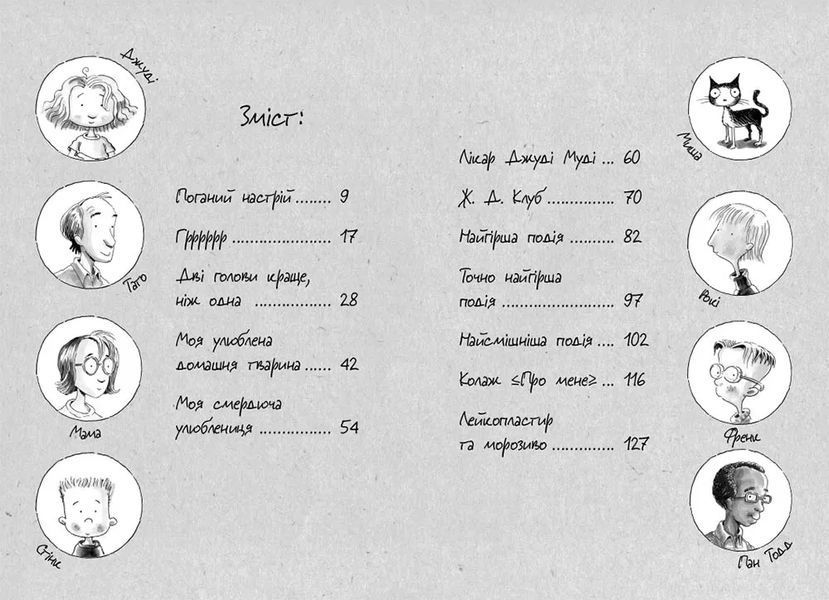 Джуді
Тато
Мама
Стінк
Зміст:
Поганий настрій ........ 9
Ґрррррр ....................... 17
Дві голови краще,
ніж одна .................. 28
Моя улюблена
домашня тварина ...... 42
Моя смердюча
улюблениця ................ 54
Лікар Джуді Муді ... 60
Ж. Д. Клуб ............... 70
Найгірша подія .......... 82
Точно найгірша
подія ......................... 97
Найсмішніша подія .... 102
Колаж «Про мене» ... 116
Лейкопластир
та морозиво .............. 127
Миша
Рокі
Френк
Пан Тодд